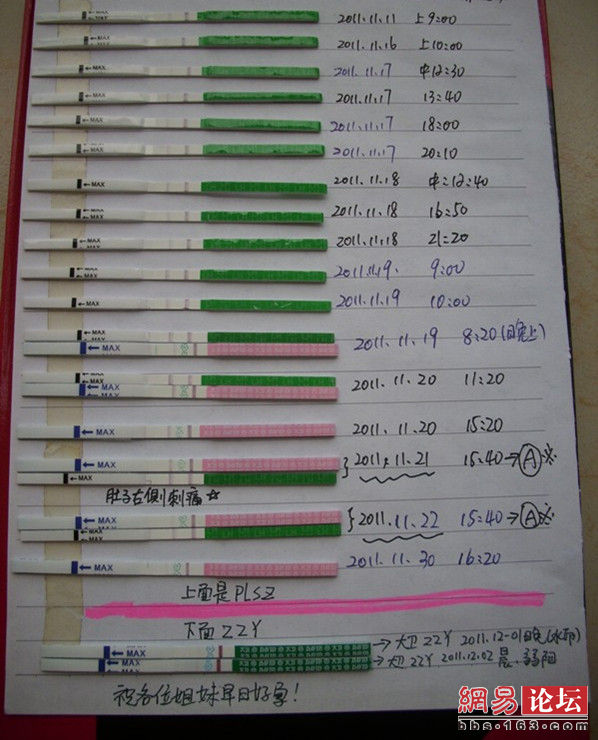 MAX 2011.11.11 上9:00
MAX 2011.11.16 上10:00
MAX 2011.11.17 中12:30
MAX 2011.11.17 13:40
MAX 2011.11.17 18:00
MAX 2011.11.17 20:10
MAX 2011.11.18 中:12:40
MAX 2011.11.18 16:50
MAX 2011.11.18 21:20
MAX 2011.11.19. 9:00
MAX 2011.11.19 10:00
MAX
MAX 2011.11.19 8:20(晚上)
MAX
MAX 2011.11.20 11:20
MAX 2011.11.20 15:20
MAX 2011.11.21 15:40→Ⓐ※
MAX
肚子右侧刺痛☆
MAX 2011.11.22 15:40→Ⓐ※
MAX
MAX 2011.11.30 16:20
上面是PLSZ
下面ZZY
MAX →大卫ZZY 2011.12-01晚(水印)
MAX →大卫ZZY 2011.12.02 晨.弱阳
祝各位姐妹早日好孕!
網易论坛
bbs.163.com